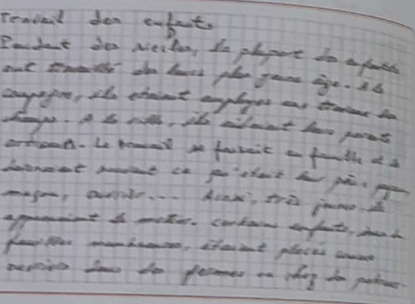 Travail des enfants
Pendant des siècles, la plupart des enfants
ont travaillé dès leur plus jeune âge. A la
campagne, ils étaient employés aux travaux des
champs. A la ville, ils aidaient leurs parents
artisans. Le travail se faisait en famille et
devenaient souvent ce qu'était leur père,
maçon, ouvrier... Ainsi, très jeunes, ils
apprenaient le métier. Certains enfants, dans
familles nombreuses, étaient placés comme
ouvriers dans des fermes ou chez des